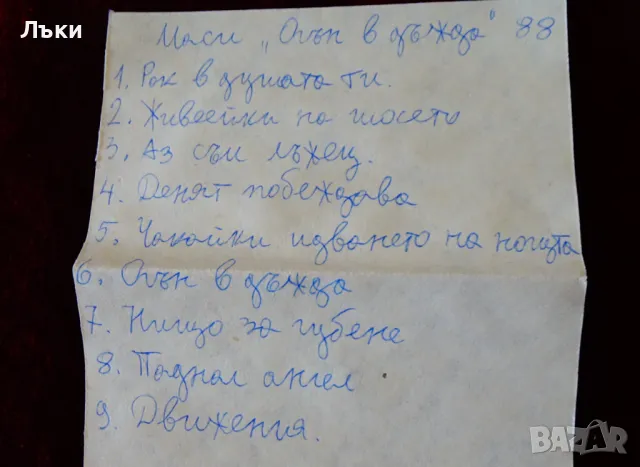 Лъки
Маси „Огън в дъжда" 88
1. Рок в душата ти.
2. Живеейки на шосето
3. Аз съм лъжец.
4. Денят побеждава
5. Чакайки идването на нощта
6. Огън в дъжда
7. Нищо за губене
8. Паднал ангел
9. Движения.
BAZAR